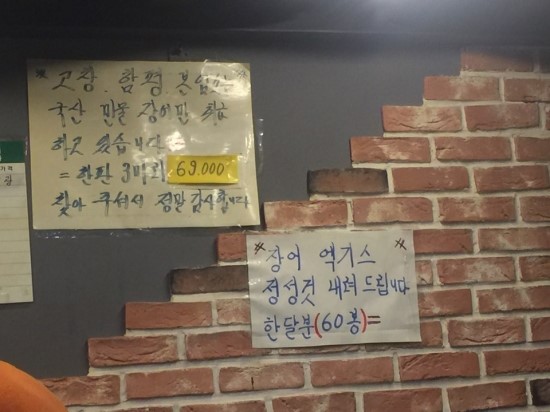 ※ 고창. 함평 본업소는
국산 민물 장어만 취급
하고 있습니다
= 한판 3마리 69,000
찾아 주셔서 정말 감사합니다
※ 장어 엑기스 ※
정성껏 내려 드립니다
한달분(60봉)=
가격